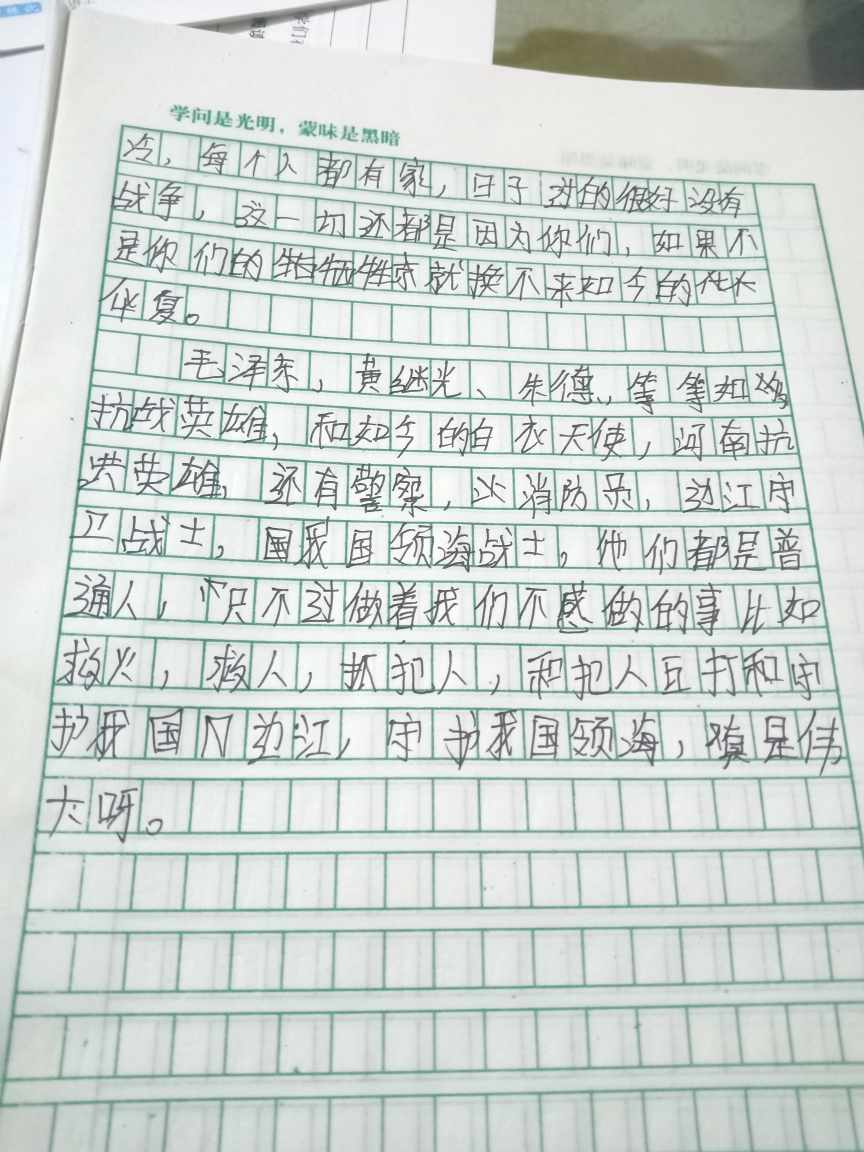 学问是光明，蒙昧是黑暗
冷，每个人都有家，日子过的很好没有
战争，这一切还都是因为你们，如果不
是你们的牺牲就换不来如今的
华夏。
毛泽东，黄继光、朱德，等等如
抗战英雄，和如今的白衣天使，河南抗
洪英雄，还有警察，消防员，边江守
卫战士，国我国领海战士，他们都是普
通人，只不过做着我们不感做的事比如
救火，救人，抓犯人，和犯人互打和守
护我国边江，守护我国领海，真是伟
大呀。